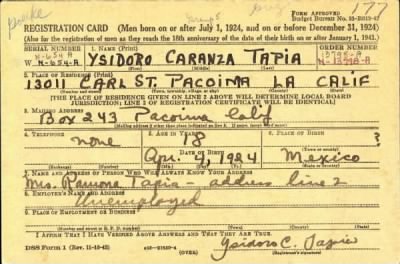 177
FORM APPROVED
REGISTRATION CARD (Men born on or after July 1, 1924, and on or before December 31, 1924)
(Also for the registration of men as they reach the 18th anniversary of the date of their birth on or after January 1, 1943.)
SERIAL NUMBER
1. NAME (Print)
ORDER NUMBER
N-654-A
W-654-A
YSIDORO CARANZA TAPIA
(First) (Middle) (Last)
2. PLACE OF RESIDENCE (Print)
13011 CARL ST. PACOIMA LA CALIF
(Number and street) (Town, township, village, or city) (County) (State)
[THE PLACE OF RESIDENCE GIVEN ON LINE 2 ABOVE WILL DETERMINE LOCAL BOARD
JURISDICTION; LINE 2 OF REGISTRATION CERTIFICATE WILL BE IDENTICAL]
3. MAILING ADDRESS
Box 243 Pacoima Calif
4. TELEPHONE
5. AGE IN YEARS
6. PLACE OF BIRTH
none
18
DATE OF BIRTH
Apr. 4, 1924
Mexico
7. NAME AND ADDRESS OF PERSON WHO WILL ALWAYS KNOW YOUR ADDRESS
Mrs. Ramona Tapia - address line 2
8. EMPLOYER'S NAME AND ADDRESS
Unemployed
9. PLACE OF EMPLOYMENT OR BUSINESS
I AFFIRM THAT I HAVE VERIFIED ABOVE ANSWERS AND THAT THEY ARE TRUE.
DSS Form 1 (OVER)
Ysidoro C. Tapia